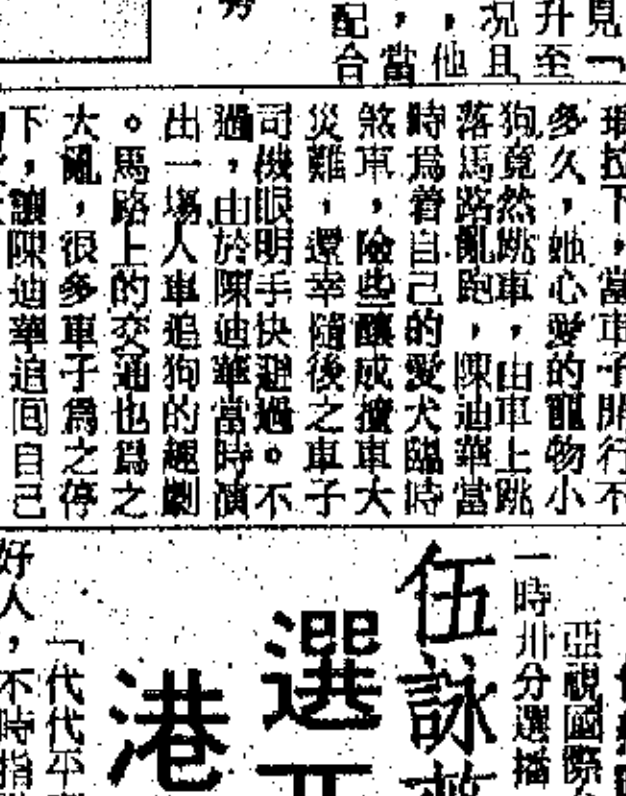 見一
升至
況且
，他
，當
配台
拉下，當車子開行不
多久，她心愛的寵物小
狗竟然跳車，由車上跳
落馬路亂跑，陳迪華當
時爲着自己的愛犬臨時
煞車，險些釀成撞車大
災難，還幸隨後之車子
司機眼明手快避過。不
過，由於陳迪華當時演
出一場人車追狗的趣劇
。馬路上的交通也爲之
大亂，很多車子爲之停
下，讓陳迪華追回自己
亞視國際
一時卅分選播
伍詠
選
港
「代代平
好人，不時指